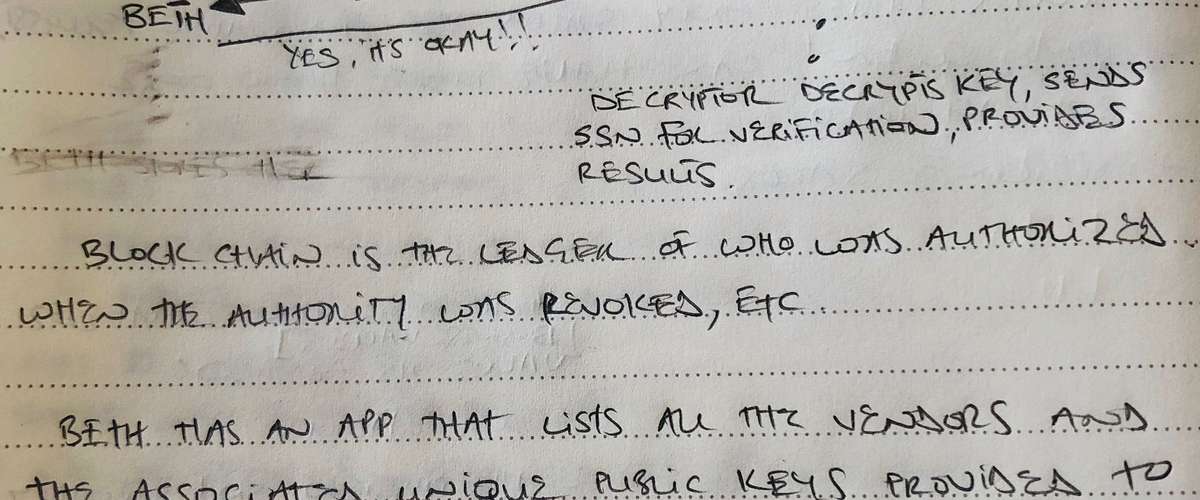 BETH
YES, ITS OKAY!!
DECRYPTOR DECRYPTS KEY, SENDS
SSN FOR VERIFICATION, PROVIDES
RESULTS.
BETH STORES HER
BLOCK CHAIN IS THE LEDGER OF WHO WAS AUTHORIZED
WHEN THE AUTHORITY WAS REVOKED, ETC
BETH HAS AN APP THAT LISTS ALL THE VENDORS AND
THE ASSOCIATED UNIQUE PUBLIC KEYS PROVIDED TO